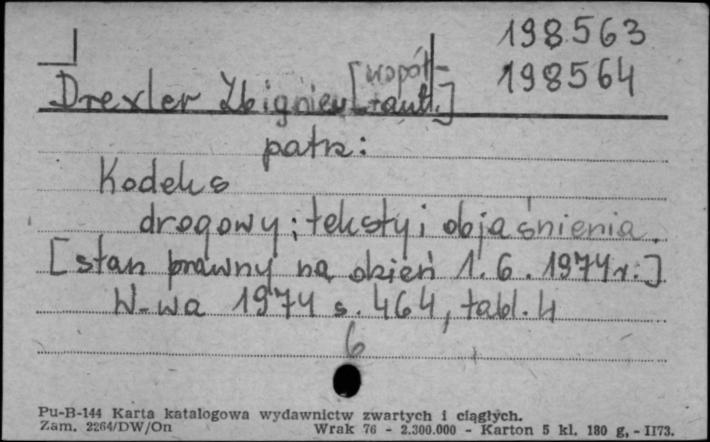 198563
198564
Drexler Zbigniew [współ-
+autł.]
patrz:
Kodeks
drogowy; teksty i objaśnienia.
[stan prawny na dzień 1.6.1974r.]
W-wa 1974 s. 464, tabl. 4
6
Pu-B-144 Karta katalogowa wydawnictw zwartych i ciągłych.
Zam. 2264/DW/On Wrak 76 - 2.300.000 - Karton 5 kl. 180 g, - II73.